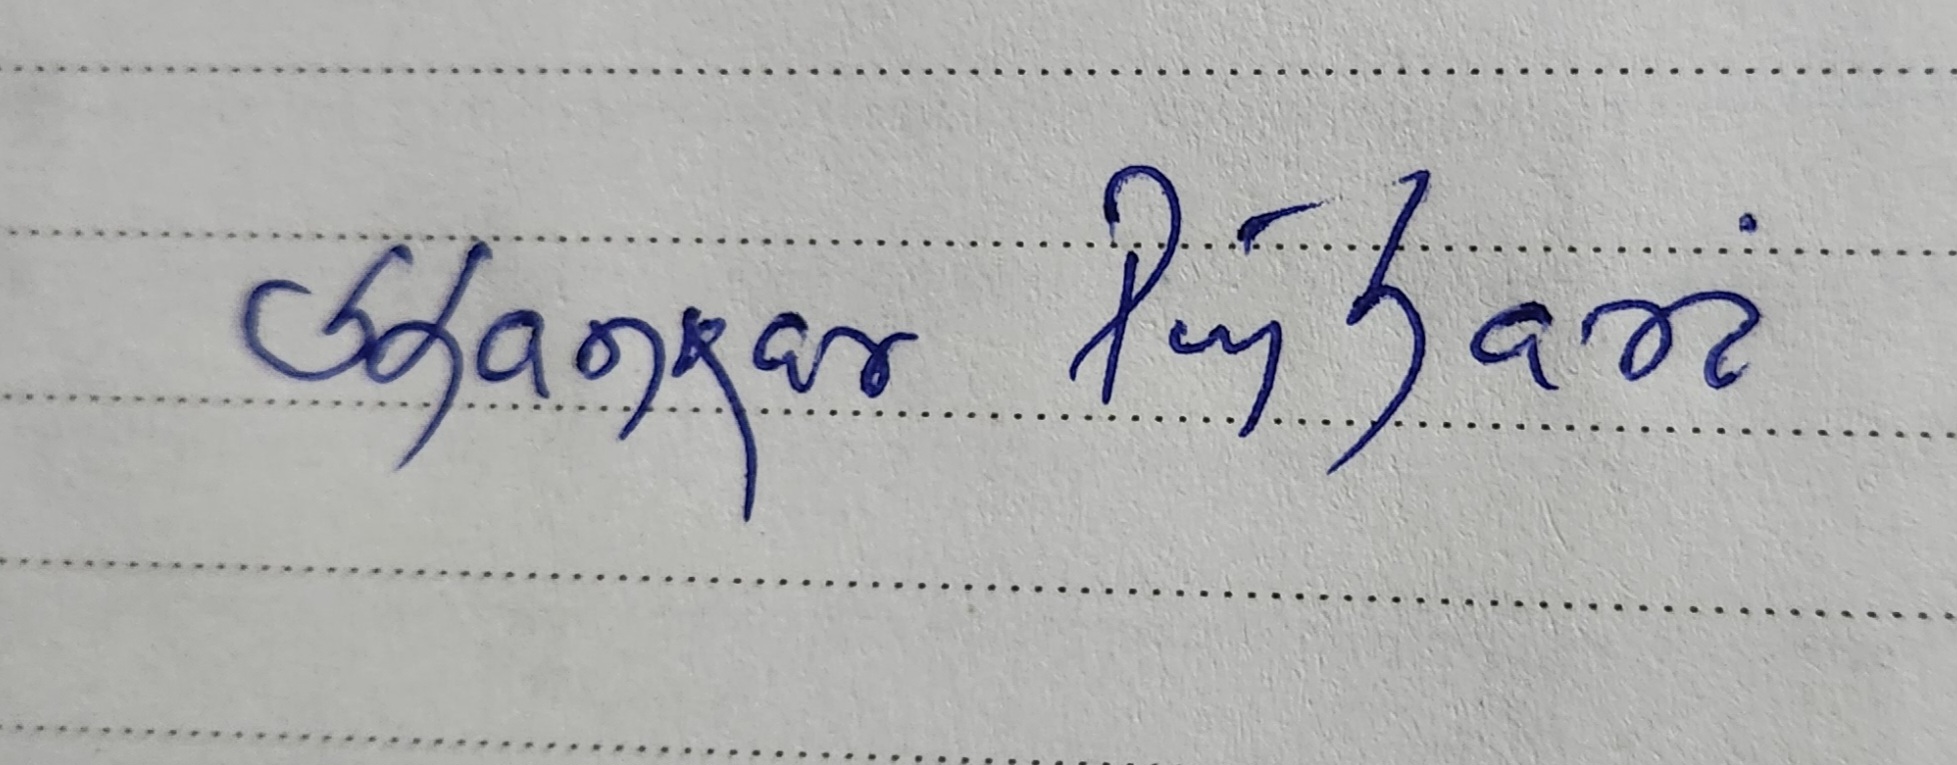 Shankar Pujhari